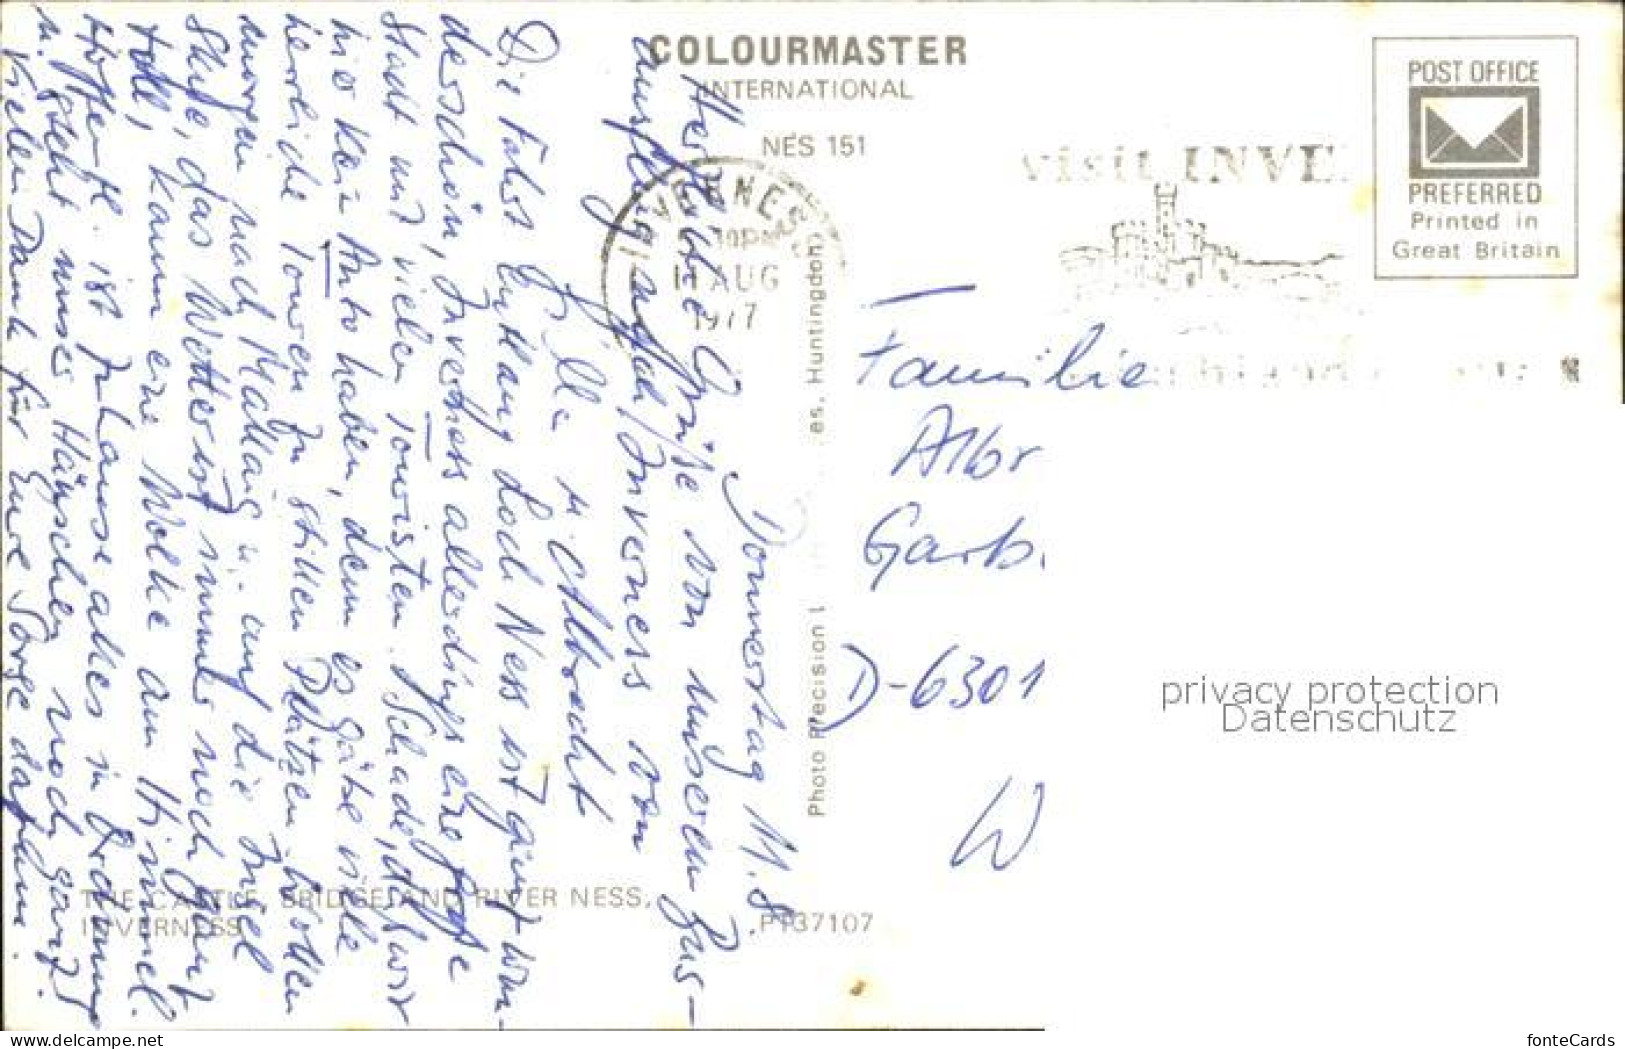 COLOURMASTER
INTERNATIONAL
NES 151
POST OFFICE
PREFERRED
Printed in
Great Britain
visit INVE
INVERNESS
PM
11 AUG
1977
Familie
Albr
Garb
D-6301
W
privacy protection
Datenschutz
Photo Precision
es, Huntingdon)
THE CASTLE, BRIDGE AND RIVER NESS,
INVERNESS
PT37107
Donnerstag 11.8.
Herzliche Grüße von unserem Bus-
ausflug nach Inverness von
u. Albrecht
Die Fahrt entlang Loch Ness ist ganz wun-
derschön, Inverness allerdings eine große
Stadt mit vielen Touristen. Schade, daß wir
hier kein Auto haben, denn es gäbe viele
herrliche Touren zu stillen Plätzen. Wollen
morgen nach Mallaig u. auf die Insel
Skye, das Wetter ist immer noch ganz
toll, kaum eine Wolke am Himmel.
Hoffentl. ist zuhause alles in Ordnung
u. steht unser Häuschen noch ganz?
Vielen Dank für Eure Sorge darum.
fonteCards
www.delcampe.net